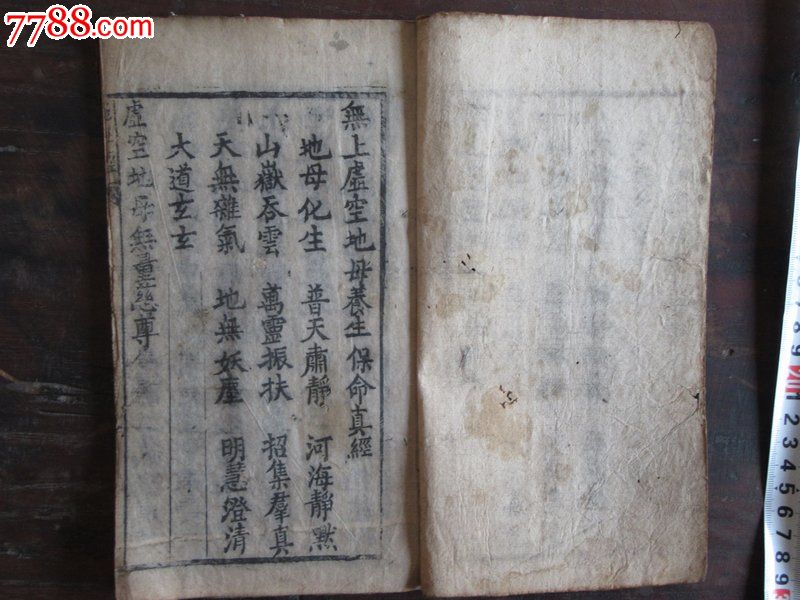 7788.com
無上虛空地母養生保命真經
地母化生 普天肅靜 河海靜默
山嶽吞雲 萬靈振扶 招集羣真
天無雜氣 地無妖塵 明慧澄清
大道玄玄
虛空地母無量慈尊